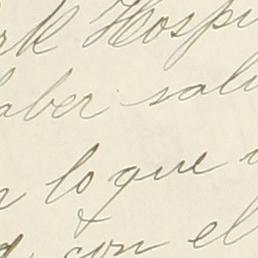 Hospi
aber sali
lo que
con el